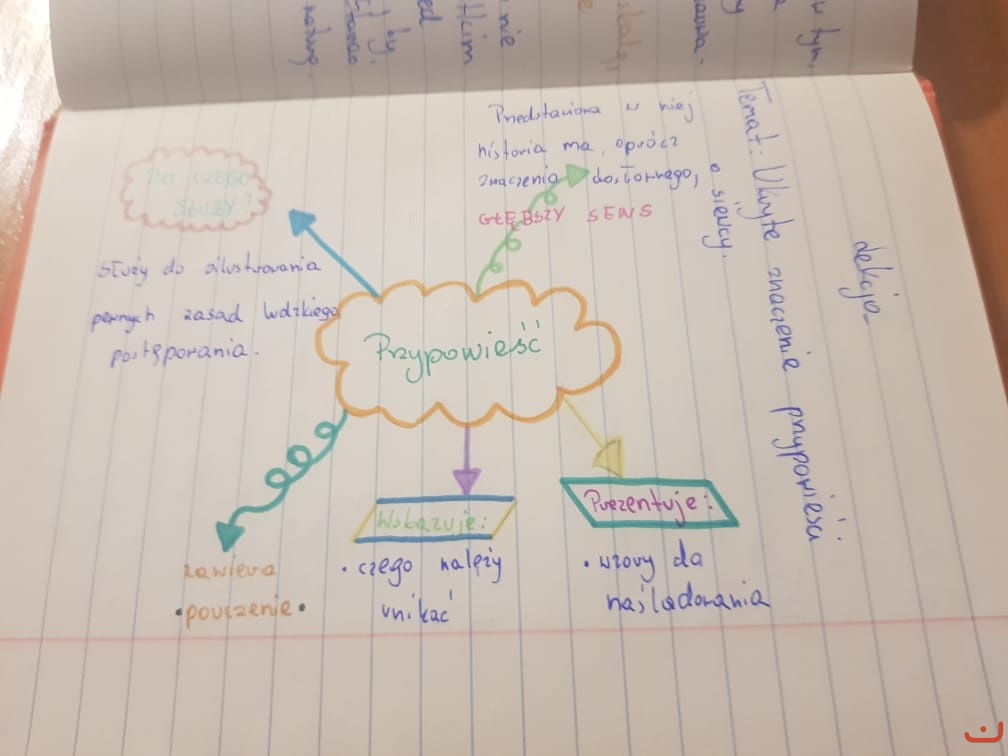 Lekcja
Temat: Ukryte znaczenie przypowieści
o siewcy.
Przedstawiona w niej
historia ma, oprócz
znaczenia dosłownego,
GŁĘBSZY SENS
Do CZEGO
SŁUŻY?
Służy do zilustrowania
pewnych zasad ludzkiego
postępowania.
Przypowieść
Prezentuje:
• wzory do
naśladowania
Wskazuje:
• czego należy
unikać
zawiera
• pouczenie •
w tym,
nie
by.